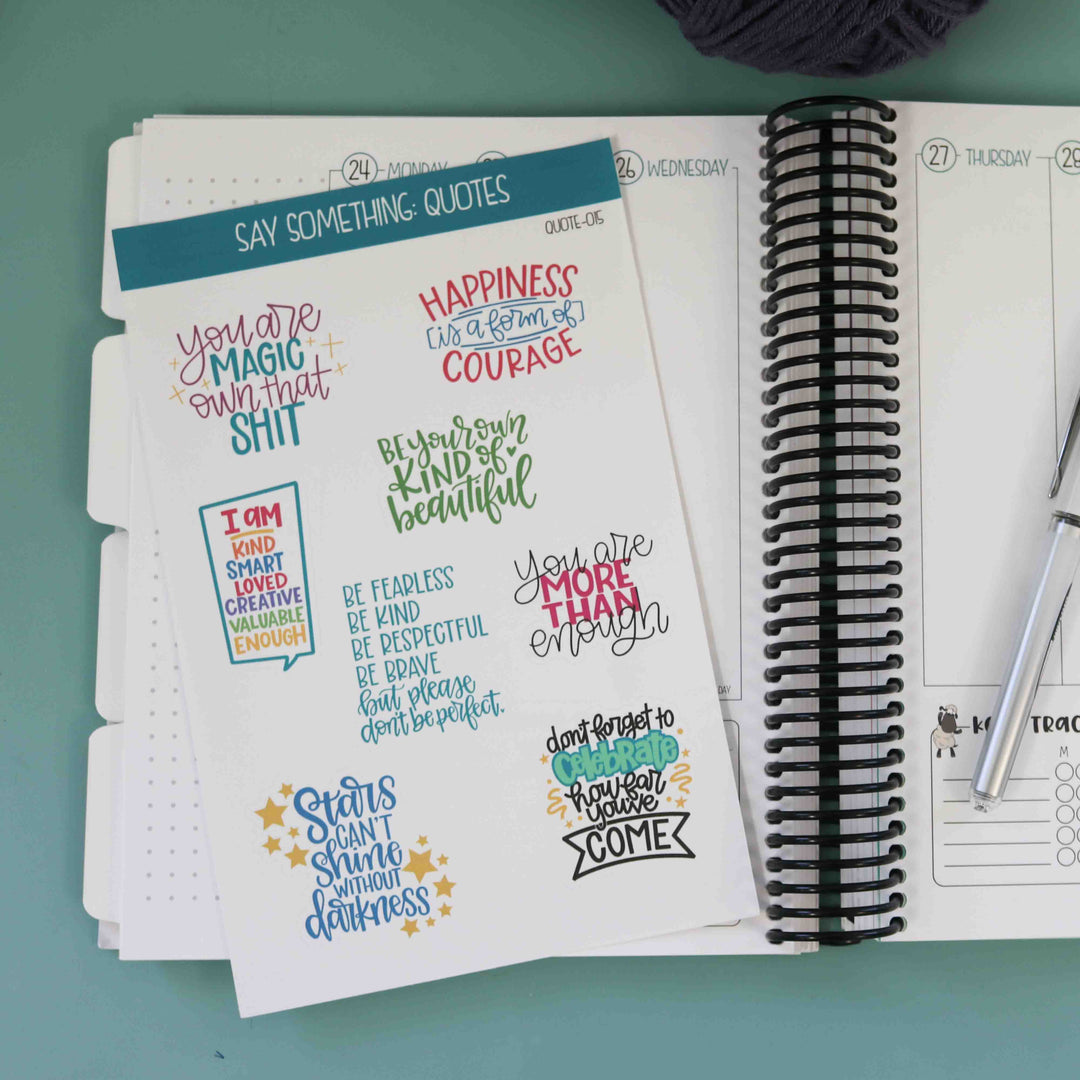 24 MONDAY
26 WEDNESDAY
27 THURSDAY
28
SAY SOMETHING: QUOTES
QUOTE-015
you are
MAGIC
own that
SHIT
HAPPINESS
[is a form of]
COURAGE
BE your own
KIND of
beautiful
I AM
KIND
SMART
LOVED
CREATIVE
VALUABLE
ENOUGH
BE FEARLESS
BE KIND
BE RESPECTFUL
BE BRAVE
but please
don't be perfect.
you are
MORE
THAN
enough
Stars
CAN'T
shine
WITHOUT
darkness
don't forget to
CELEBRATE
how far
you've
COME
TRAC
M